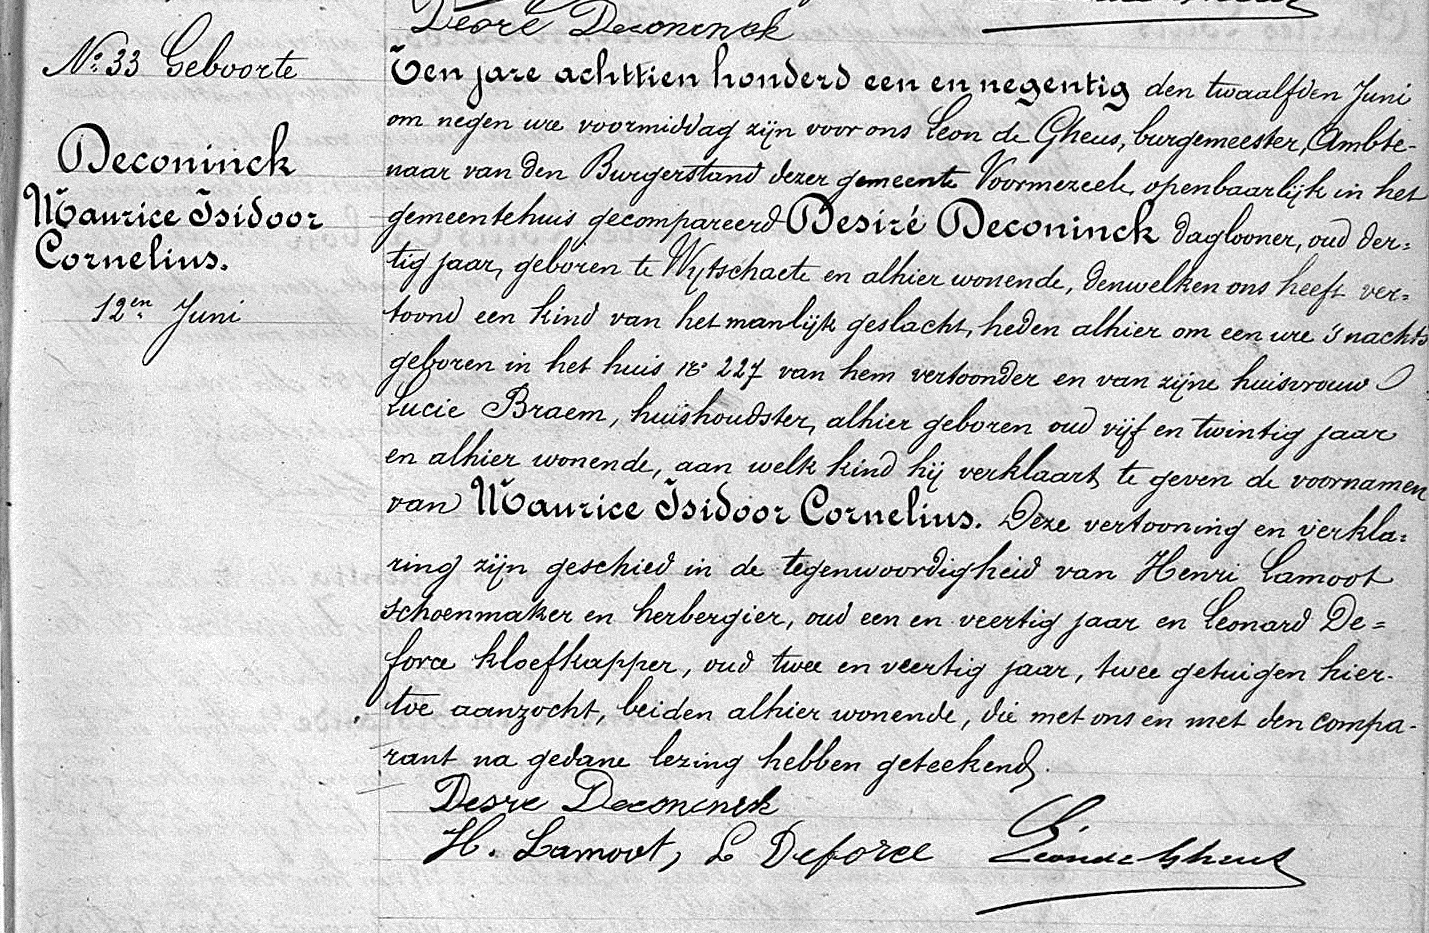 Desre Deconinck
Nº 33 Geboorte
Deconinck
Maurice Isidoor
Cornelius.
12en Juni
Ten jare achttien honderd een en negentig den twaalfden Juni
om negen ure voormiddag zijn voor ons Leon de Gheus, burgemeester, Ambte-
naar van den Burgerstand dezer gemeente Voormezeele, openbaarlijk in het
gemeentehuis gecompareerd Desiré Deconinck daglooner, oud der=
tig jaar, geboren te Wytschaete en alhier wonende, denwelken ons heeft ver=
toond een kind van het manlijk geslacht, heden alhier om een ure 's nachts
geboren in het huis nº 227 van hem vertoonder en van zijne huisvrouw
Lucie Braem, huishoudster, alhier geboren oud vijf en twintig jaar
en alhier wonende, aan welk kind hij verklaart te geven de voornamen
van Maurice Isidoor Cornelius. Deze vertooning en verkla=
ring zijn geschied in de tegenwoordigheid van Henri Lamoot
schoenmaker en herbergier, oud een en veertig jaar en Leonard De=
force kloefkapper, oud twee en veertig jaar, twee getuigen hier-
toe aanzocht, beiden alhier wonende, die met ons en met den compa-
rant na gedane lezing hebben geteekend.
Desre Deconinck
H. Lamoot, L Deforce Léon de Gheus